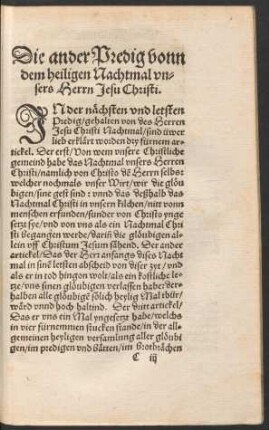 Die ander Predig vonn
dem heiligen Nachtmal vn-
sers Herrn Jesu Christi.
IN der nächsten vnd letsten
Predig/gehalten von des Herren
Jesu Christi Nachtmal/sind üwer
lieb erklärt worden dry fürnem ar-
tickel. Der erst/Von wem vnsere Christliche
gemeind habe das Nachtmal vnsers Herren
Christi/namlich von Christo dē Herrn selbs:
welcher nochmals vnser Wirt/wir die glöu
bigen/sine gest sind: vnnd das deßhalb das
Nachtmal Christi in vnsern kilchen/nitt vonn
menschen erfunden/sunder von Christo ynge
setzt sye/vnd von vns als ein Nachtmal Chri
sti begangen werde/dariñ die glöubigen al-
lein vff Christum Jesum sähend. Der ander
artickel/Das der Herr anfangs dises Nacht
mal in sinē letsten abscheid von diser zyt/vnd
als er in tod hingon wolt/als ein kostliche le-
tze/vns sinen glöubigen verlassen habe:der-
halben alle glöubigē sölich heylig Mal thür/
wärd vnnd hoch haltind. Der dritt artickel/
Das er vns ein Mal yngesetzt habe/welchs
in vier fürnemmen stucken stande/in der all-
gemeinen heyligen versamlung aller glöubi
gen/im predigen vnd bätten/im Brotbrächen
C iij